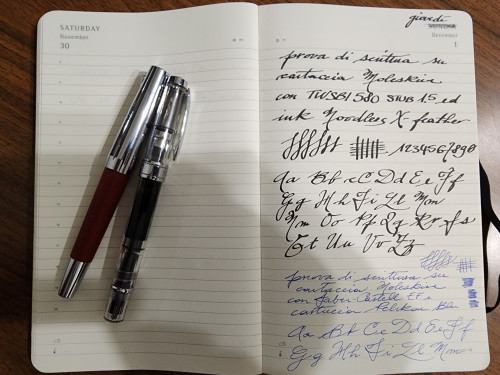 SATURDAY
November
30
giovedì
December
1
prova di scrittura su
cartaccia Moleskine
con TWSBI 580 STUB 1.5 ed
ink Noodlers X-feather
1234567890
Aa Bb Cc Dd Ee Ff
Gg Hh Ii Ll Mm
Nn Oo Pp Qq Rr Ss
Tt Uu Vv Zz
prova di scrittura su
cartaccia Moleskine
con Faber-Castell EF e
cartuccia Pelikan Blu
Aa Bb Cc Dd Ee Ff
Gg Hh Ii Ll Mm